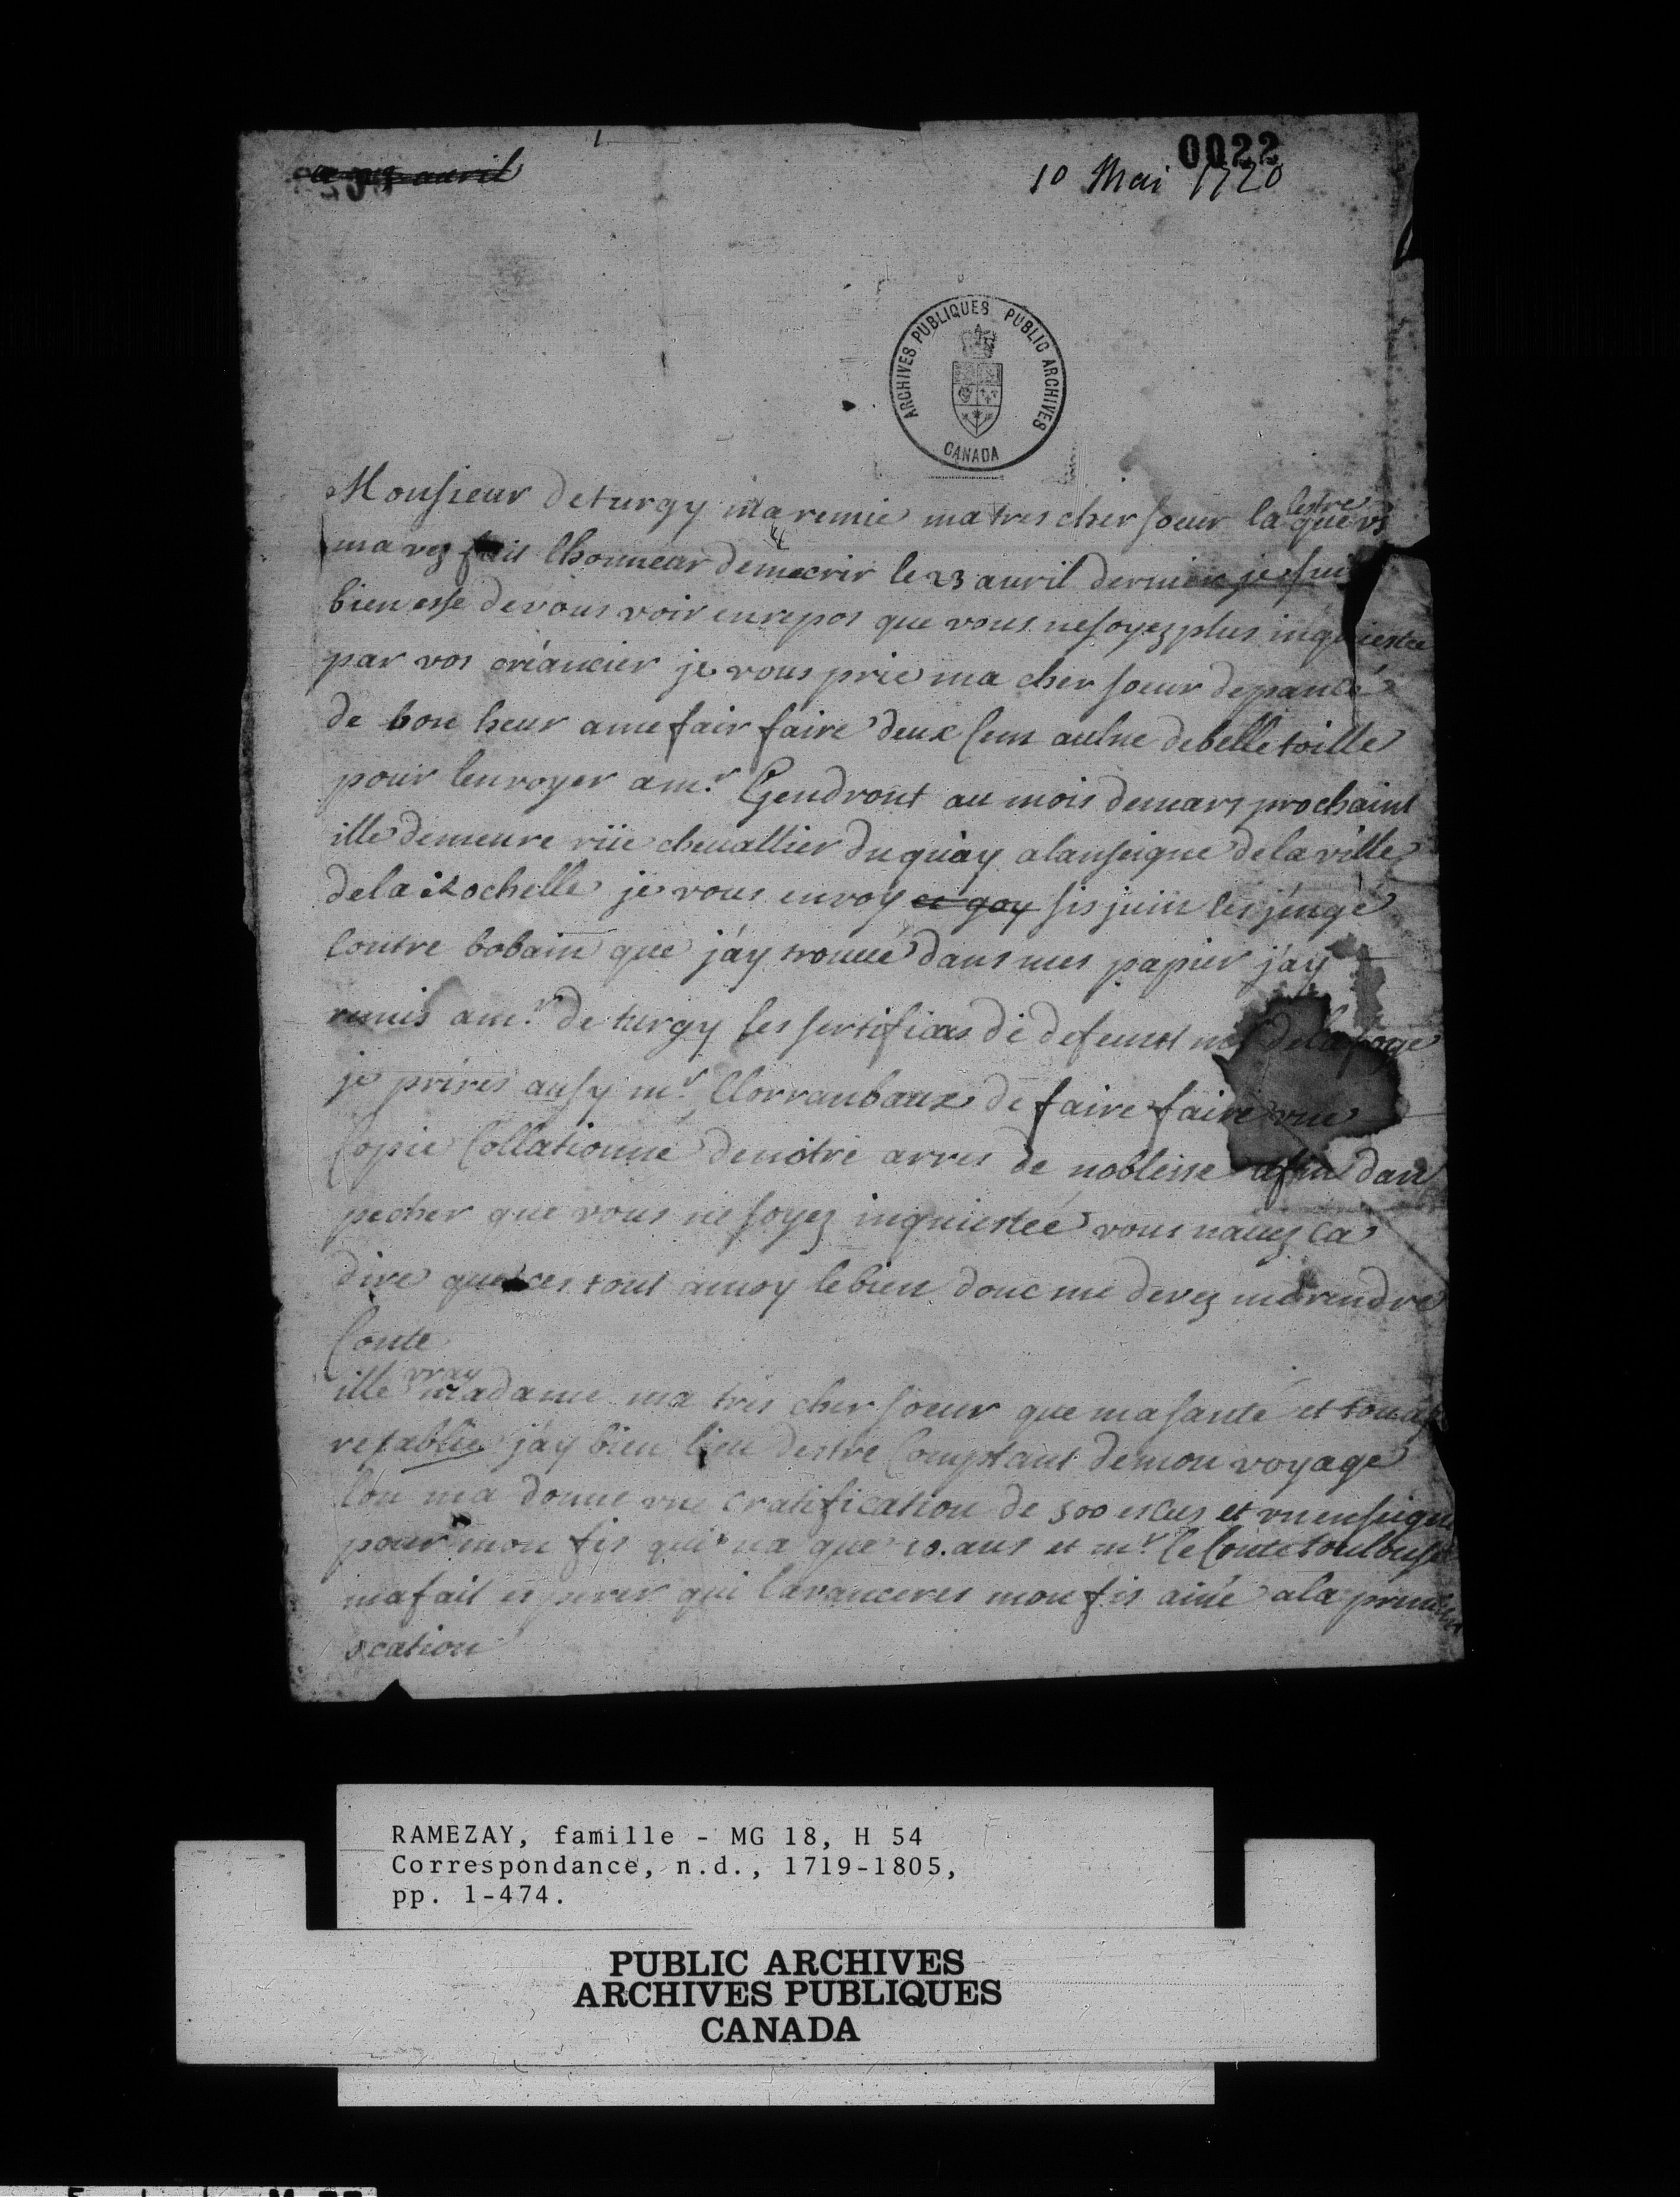 0022
10 Mai 1720
ARCHIVES PUBLIQUES PUBLIC ARCHIVES
CANADA
Monsieur deturgy ma remie ma tres cher soeur la lestre que vs
mavez fait lhonneur demecrir le 23 auril dernier je suis
bien esse devous voir enrepos que vous nesoyez plus inquiestée
par vos créancier je vous prie ma cher soeur depancé
de bon heur ame fair faire deux sens aulne debelle toille
pour lenvoyer a mr. Gendront au mois demars prochaint
ille demeure rüe cheuallier du quay alanseigne de la ville
dela Rochelle je vous envoy sis juin les
contre bobain que j'ay trouué dans mes papier j'ay
remis a mr. de turgy les sertificas de defeunt
je prires ausy mr. de faire faire vne
Copie Collationne denotre arres de noblesse afin dan
pecher que vous ne soyez inquiestée vous nauez ca
dire que ces tout amoy le bien donc me devez me rendre
Conte
ille vray madame ma tres cher soeur que ma santé et
retablie j'ay bien lieu destre Comptant demon voyage
lon ma donne vne cratification de 500 escus et vn enseigne
pour mon fis qui na que 10. ans et mr. le Conte toulouse
ma fait esperer qui lavanceres mon fis ainé ala premiere
ocation
RAMEZAY, famille - MG 18, H 54
Correspondance, n.d., 1719-1805,
pp. 1-474.
PUBLIC ARCHIVES
ARCHIVES PUBLIQUES
CANADA